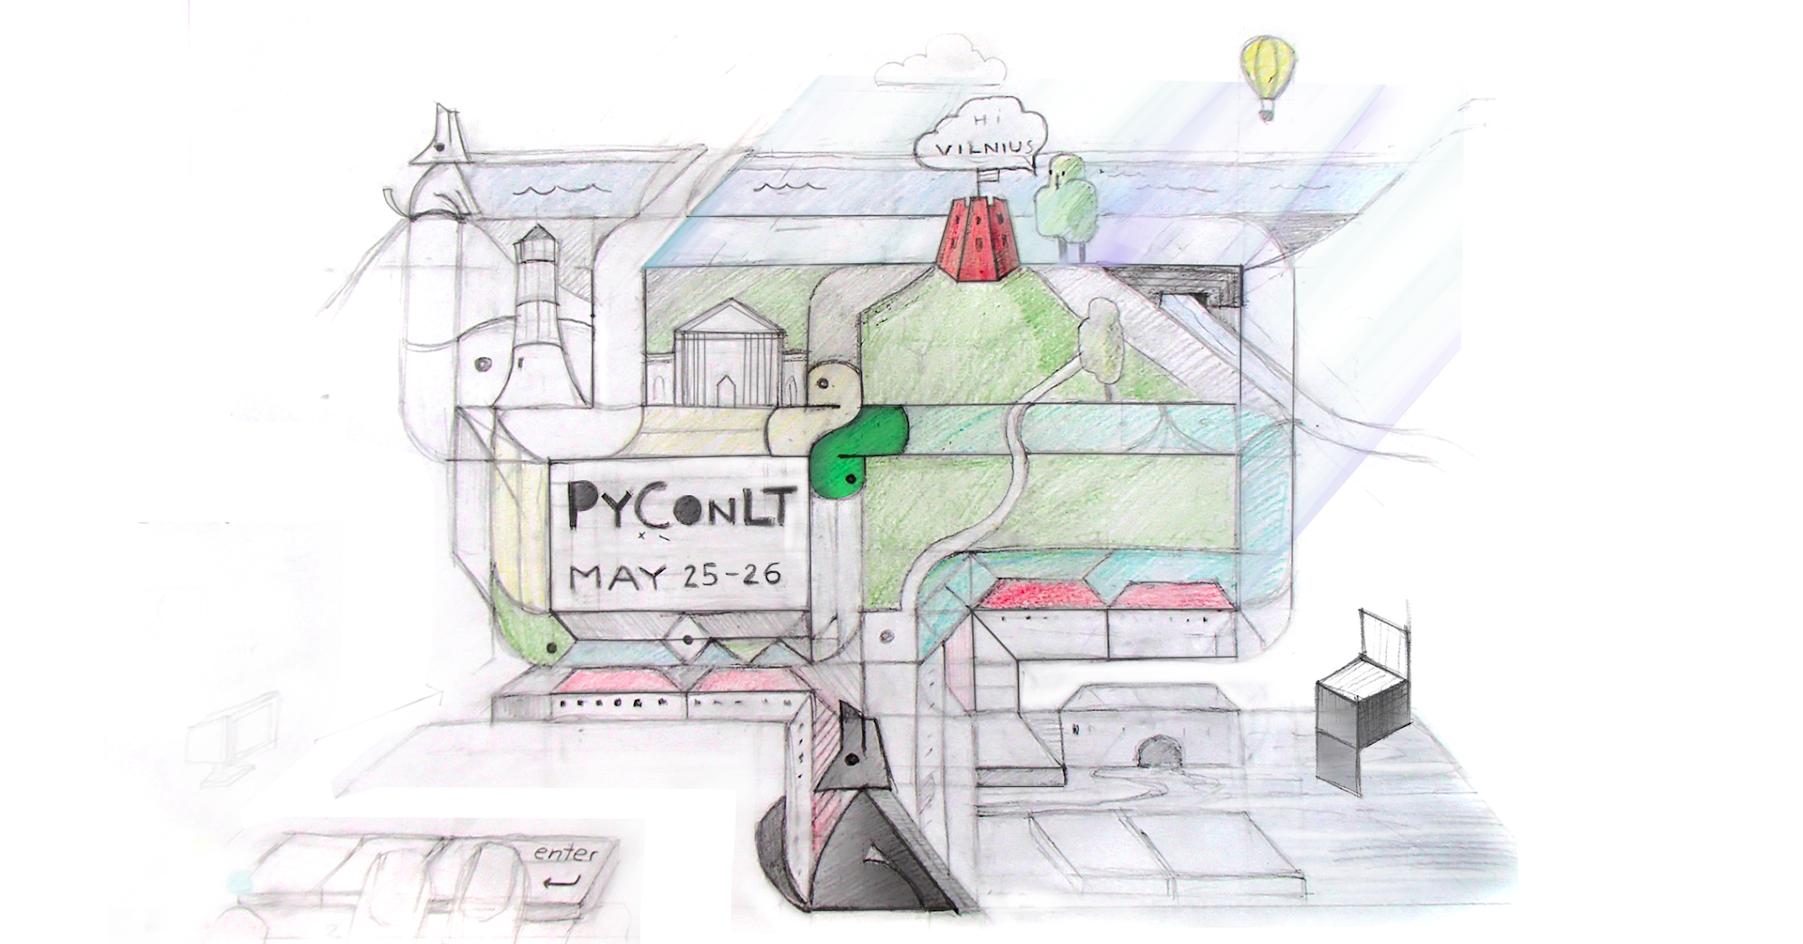 Hi
VILNIUS
PYCONLT
MAY 25-26
enter